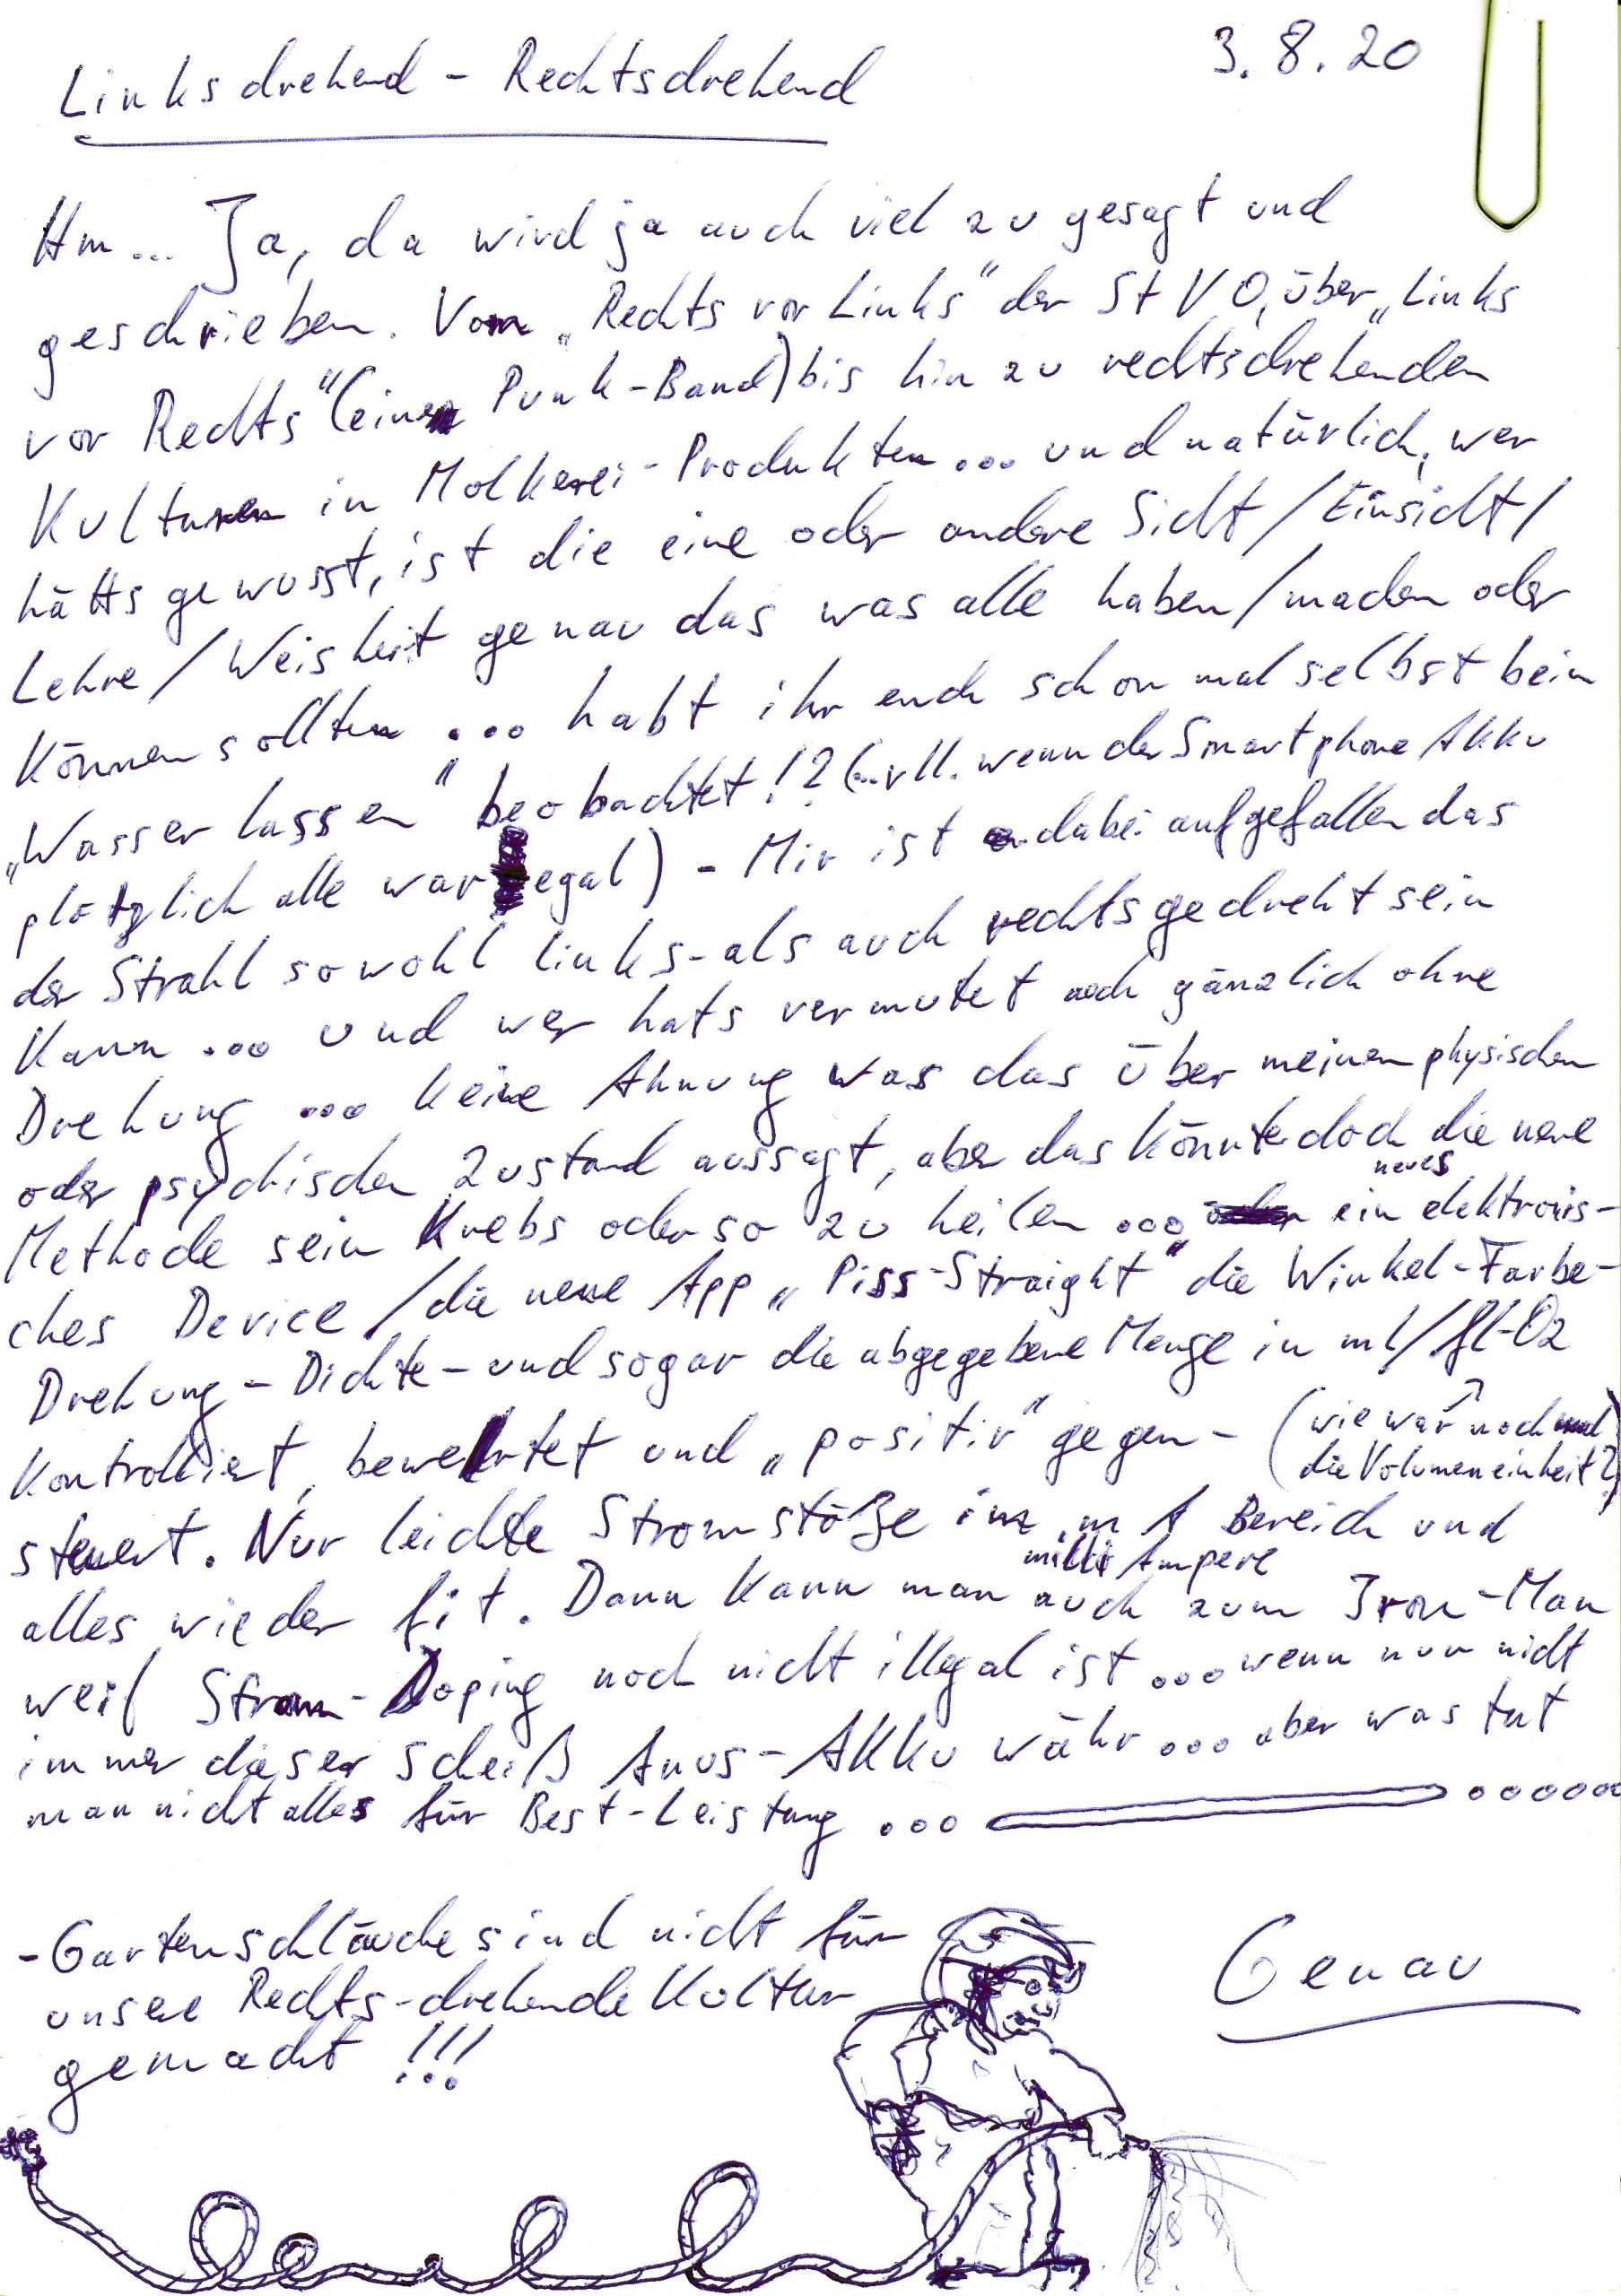 Linksdrehend - Rechtsdrehend
3.8.20
Hm... Ja, da wird ja auch viel zu gesagt und
geschrieben. Vom „Rechts vor Links" der StVO, über „Links
vor Rechts" (eine Punk-Band) bis hin zu rechtsdrehenden
Kulturen in Molkerei-Produkten... und natürlich, wer
hätts gewusst, ist die eine oder andere Sicht/Einsicht/
Lehre/Weisheit genau das was alle haben/machen oder
können sollten ... habt ihr euch schon mal selbst beim
„Wasser lassen" beobachtet!? (...vll. wenn der Smartphone Akku
plötzlich alle war egal) - Mir ist dabei aufgefallen das
der Strahl sowohl links- als auch rechtsgedreht sein
kann ... und wer hats vermutet auch gänzlich ohne
Drehung ... keine Ahnung was das über meinen physischen
oder psychischen Zustand aussagt, aber das könnte doch die neue
Methode sein Krebs oder so zu heilen ... ein neues elektronis-
ches Device/die neue App „Piss-Straight" die Winkel-Farbe-
Drehung-Dichte-und sogar die abgegebene Menge in ml/fl-Oz
kontrolliert, bewertet und „positiv" gegen-
(wie war noch
die Volumeneinheit?)
steuert. Nur leichte Stromstöße im mA Bereich und
milli Ampere
alles wieder fit. Dann kann man auch zum Iron-Man
weil Strom-Doping noch nicht illegal ist ... wenn nur nicht
immer dieser scheiß Anus-Akku währ ... aber was tut
man nicht alles für Best-Leistung ...
-Gartenschläuche sind nicht für
unsere Rechts-drehende Kultur
gemacht !!!
Genau